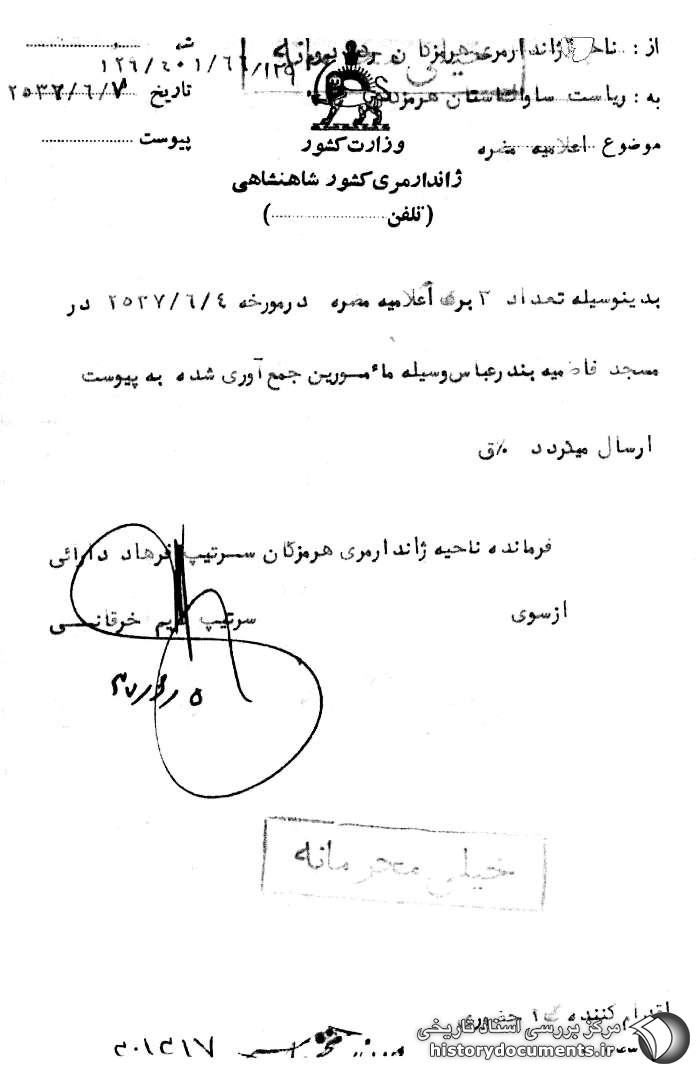 از : ناحیه ژاندارمری هرمزگان
خیلی محرمانه
به : ریاست ساواک استان هرمزگان
موضوع اعلامیه مضره
۱۲۹/۴۰۱/۶۶/۱۳۹
تاریخ ۲۵۳۷/۶/۷
پیوست
وزارت کشور
ژاندارمری کشور شاهنشاهی
(تلفن)
بدینوسیله تعداد ۳ برگ اعلامیه مضره درمورخه ۲۵۳۷/۶/۴ در
مسجد فاطمیه بندرعباس وسیله مأمورین جمع آوری شده به پیوست
ارسال میگردد ٪ق
فرمانده ناحیه ژاندارمری هرمزگان سرتیپ فرهاد دارائی
ازسوی سرتیپ خرقانی
خیلی محرمانه
اقدام کننده
مرکز بررسی اسناد تاریخی
historydocuments.ir